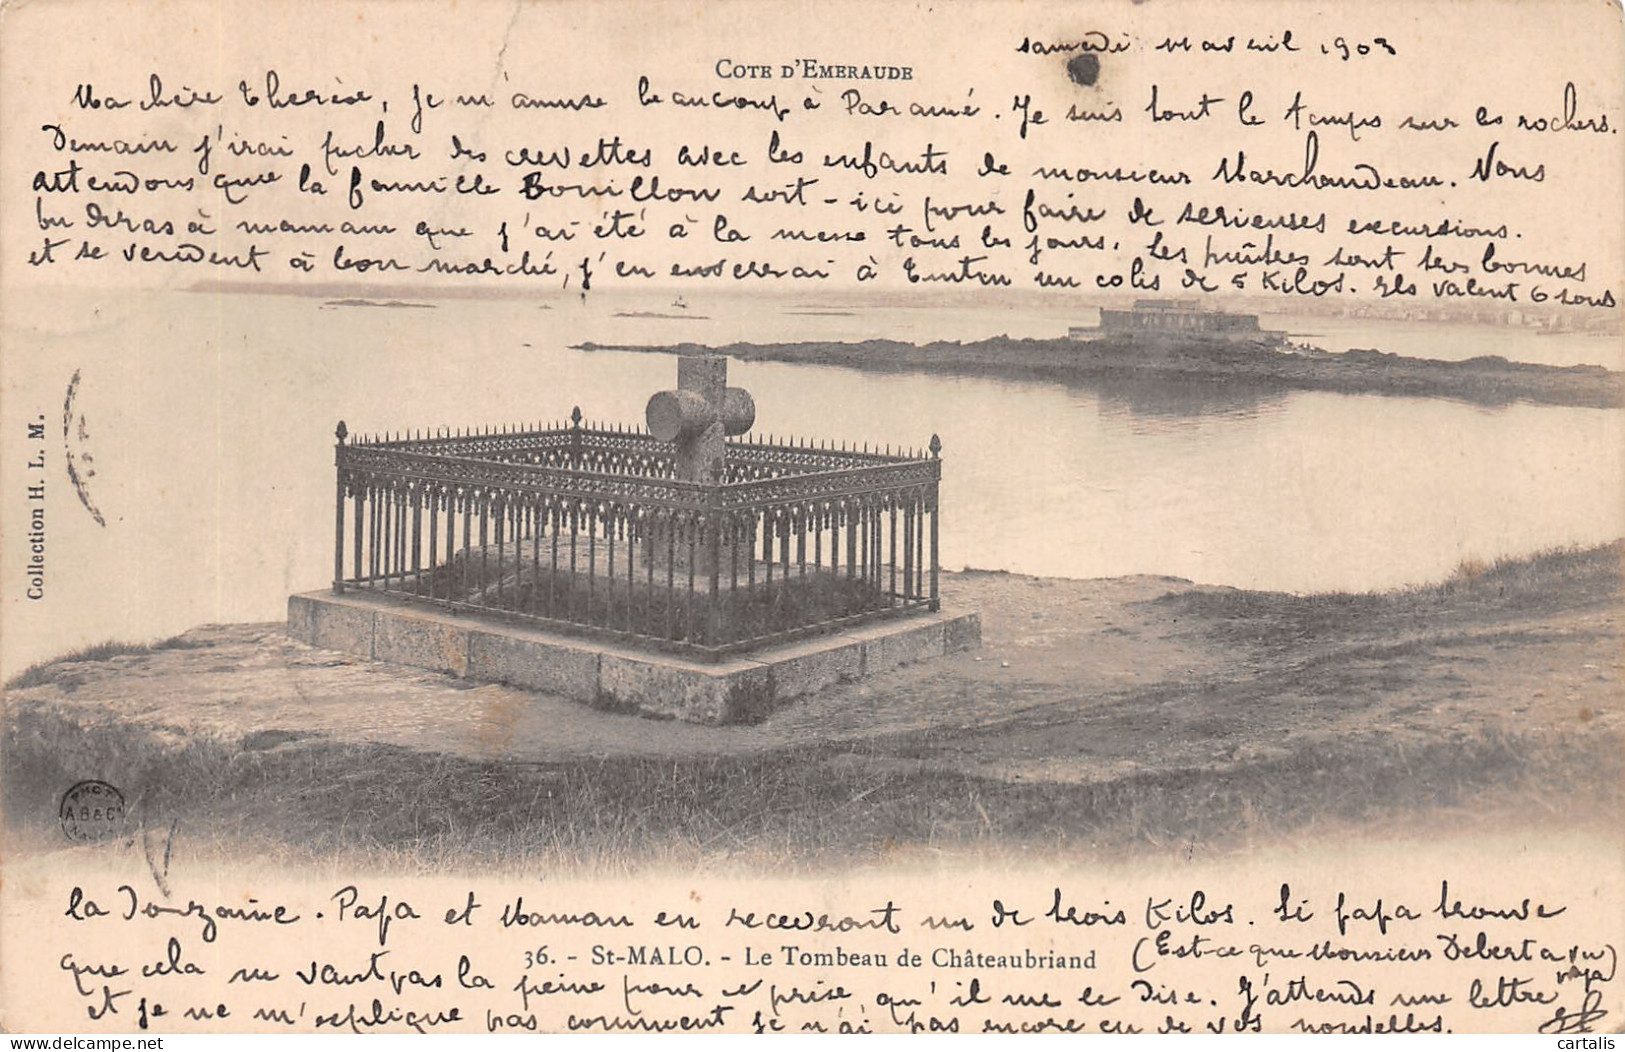 samedi 11 avril 1903
COTE D'EMERAUDE
Ma chère Therèse, Je m'amuse beaucoup à Paramé. Je suis tout le temps sur les rochers.
Demain j'irai pêcher des crevettes avec les enfants de monsieur Marchandeau. Nous
attendons que la famille Bouillon soit-ici pour faire de serieuses excursions.
Tu diras à maman que j'ai été à la messe tous les jours. Les huîtres sont très bonnes
et se vendent à bon marché, j'en enverrai à Tintin un colis de 5 Kilos. Ils valent 6 sous
Collection H. L. M.
PHOT
A.B & Cie
NANCY
la douzaine. Papa et Maman en recevront un de trois Kilos. Si papa trouve
36. - St-MALO. - Le Tombeau de Châteaubriand
(Est-ce que Monsieur Debert a vu
papa)
que cela ne vaut pas la peine pour ce prix, qu'il me le dise. J'attends une lettre
et je ne m'explique pas comment je n'ai pas encore eu de vos nouvelles.
cartalis